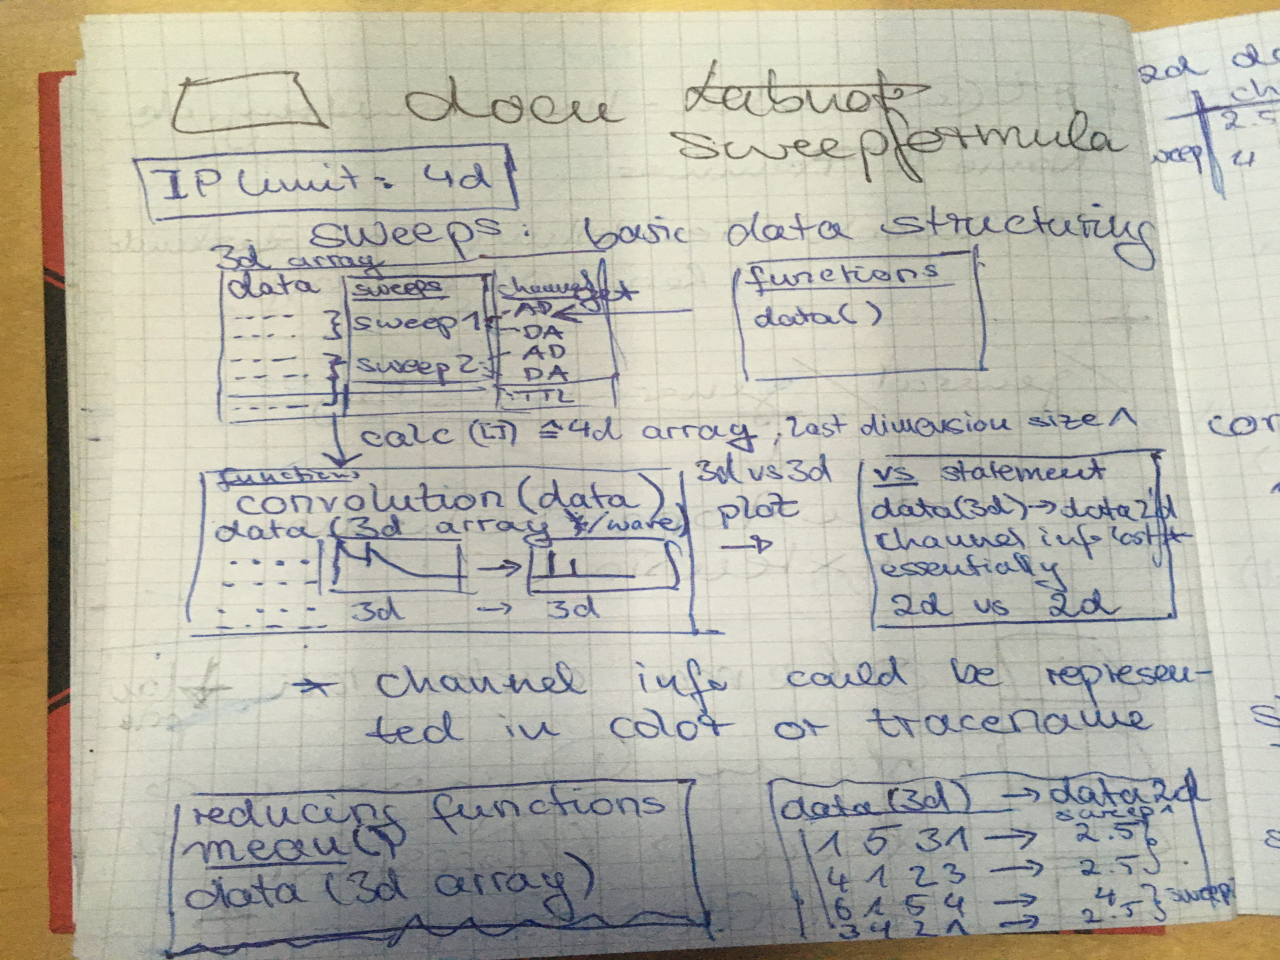 docu labnot
sweepformula
IP limit: 4d
sweeps: basic data structuring
3d array
data sweeps channels *
sweep 1 AD
DA
sweep 2 AD
DA
TTL
functions
data()
calc (LT) ≙ 4d array, last dimension size 1
functions
convolution (data)
data (3d array /wave)
3d → 3d
3d vs 3d
plot
→
vs statement
data(3d) → data 2d
channel info lost *
essentially
2d vs 2d
* channel info could be represen-
ted in color or tracename
reducing functions
mean()
data (3d array)
data (3d) → data 2d
sweep 1
1 5 3 1 → 2.5
4 1 2 3 → 2.5
6 1 5 4 → 4 } sweep
3 4 2 1 → 2.5
2d da
ch
2.5
sweep 4
con